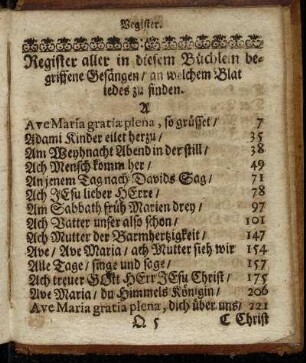 Register.
Register aller in diesem Büchlein be-
griffene Gesängen / an welchem Blat
iedes zu finden.
A
Ave Maria gratiæ plena, so grüsset / 7
Adams Kinder eilet herzu / 35
Am Weyhnacht Abend in der still / 38
Ach Mensch komm her / 49
An jenem Tag nach Davids Sag / 71
Ach JEsu lieber HErre / 78
Am Sabbath früh Marien drey / 97
Ach Vatter unser also schon / 101
Ach Mutter der Barmhertzigkeit / 147
Ave / Ave Maria / ach Mutter sieh wir 154
Alle Tage / singe und sage / 157
Ach treuer GOtt HErr JEsu Christ / 175
Ave Maria / du Himmels Königin / 206
Ave Maria gratia plena, dich über uns / 221
Q 5 C Christ